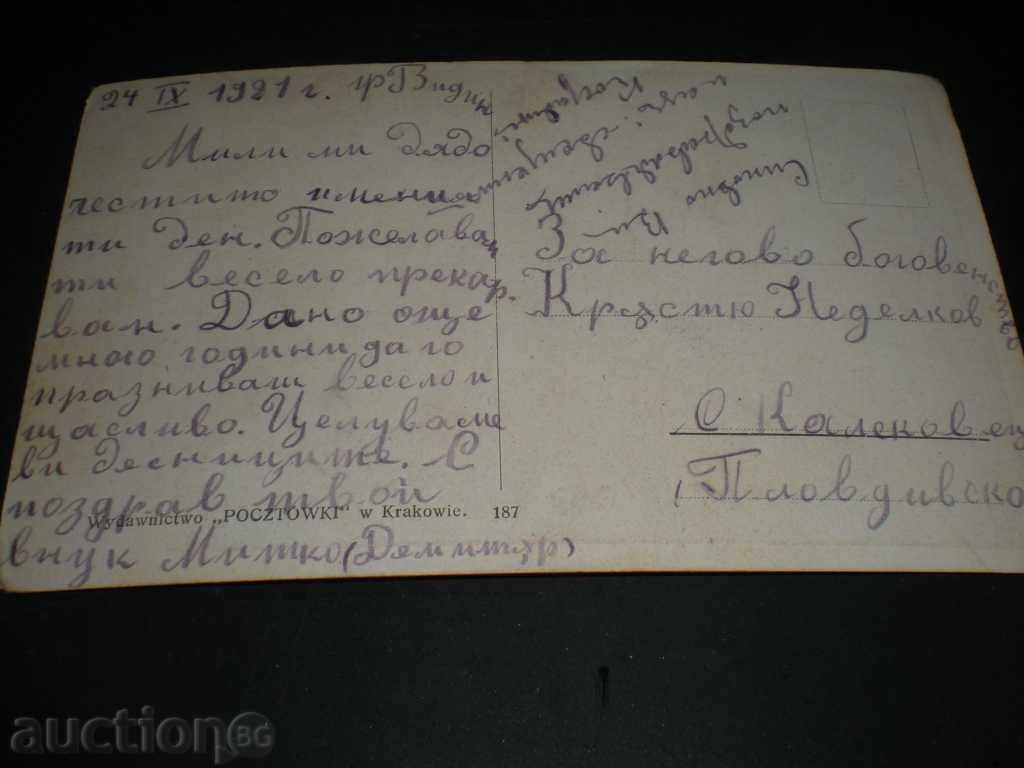 24 IX 1921 г. гр Видин
Мили ми дядо
честито имения
ти ден. Пожелавам
ти весело прекар.
ван. Дано още
много години да го
празниваш весело и
щасливо. Целуваме
ви десниците. С
поздрав твой
внук Митко (Демитър)
Wydawnictwo „POCZTÓWKI" w Krakowie. 187
За негово боговенство
Кръстю Неделков
С Калековец
Пловдивско
auctionBG